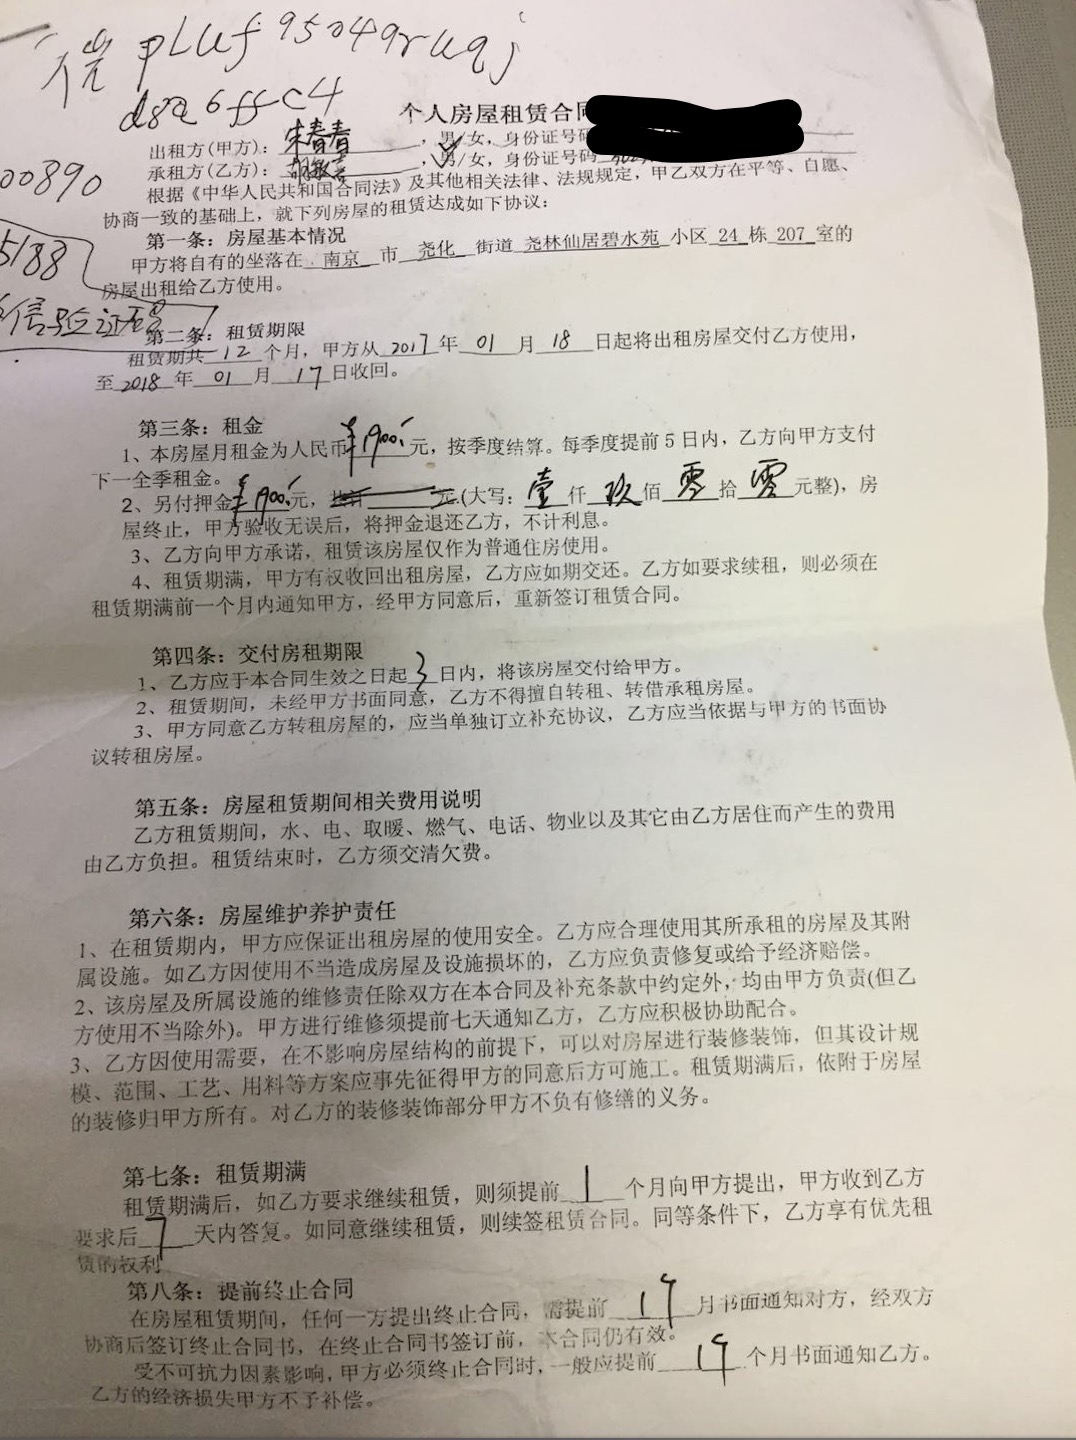 pLUf95049ruqj
d8a6ffc4
个人房屋租赁合同
出租方(甲方):朱春春,男/女,身份证号码
承租方(乙方):,男/女,身份证号码
00890
根据《中华人民共和国合同法》及其他相关法律、法规规定,甲乙双方在平等、自愿、
协商一致的基础上,就下列房屋的租赁达成如下协议:
5188
第一条:房屋基本情况
甲方将自有的坐落在 南京 市 尧化 街道 尧林仙居碧水苑 小区 24 栋 207 室的
房屋出租给乙方使用。
信验证
第二条:租赁期限
租赁期共 12 个月,甲方从 2017 年 01 月 18 日起将出租房屋交付乙方使用,
至 2018 年 01 月 17 日收回。
第三条:租金
1、本房屋月租金为人民币¥1900元,按季度结算。每季度提前5日内,乙方向甲方支付
下一全季租金。
2、另付押金¥1900元,元(大写:壹仟玖佰零拾零元整),房
屋终止,甲方验收无误后,将押金退还乙方,不计利息。
3、乙方向甲方承诺,租赁该房屋仅作为普通住房使用。
4、租赁期满,甲方有权收回出租房屋,乙方应如期交还。乙方如要求续租,则必须在
租赁期满前一个月内通知甲方,经甲方同意后,重新签订租赁合同。
第四条:交付房租期限
1、乙方应于本合同生效之日起3日内,将该房屋交付给甲方。
2、租赁期间,未经甲方书面同意,乙方不得擅自转租、转借承租房屋。
3、甲方同意乙方转租房屋的,应当单独订立补充协议,乙方应当依据与甲方的书面协
议转租房屋。
第五条:房屋租赁期间相关费用说明
乙方租赁期间,水、电、取暖、燃气、电话、物业以及其它由乙方居住而产生的费用
由乙方负担。租赁结束时,乙方须交清欠费。
第六条:房屋维护养护责任
1、在租赁期内,甲方应保证出租房屋的使用安全。乙方应合理使用其所承租的房屋及其附
属设施。如乙方因使用不当造成房屋及设施损坏的,乙方应负责修复或给予经济赔偿。
2、该房屋及所属设施的维修责任除双方在本合同及补充条款中约定外,均由甲方负责(但乙
方使用不当除外)。甲方进行维修须提前七天通知乙方,乙方应积极协助配合。
3、乙方因使用需要,在不影响房屋结构的前提下,可以对房屋进行装修装饰,但其设计规
模、范围、工艺、用料等方案应事先征得甲方的同意后方可施工。租赁期满后,依附于房屋
的装修归甲方所有。对乙方的装修装饰部分甲方不负有修缮的义务。
第七条:租赁期满
租赁期满后,如乙方要求继续租赁,则须提前 1 个月向甲方提出,甲方收到乙方
要求后 7 天内答复。如同意继续租赁,则续签租赁合同。同等条件下,乙方享有优先租
赁的权利
第八条:提前终止合同
在房屋租赁期间,任何一方提出终止合同,需提前 1个 月书面通知对方,经双方
协商后签订终止合同书,在终止合同书签订前,本合同仍有效。
受不可抗力因素影响,甲方必须终止合同时,一般应提前 1个 个月书面通知乙方。
乙方的经济损失甲方不予补偿。